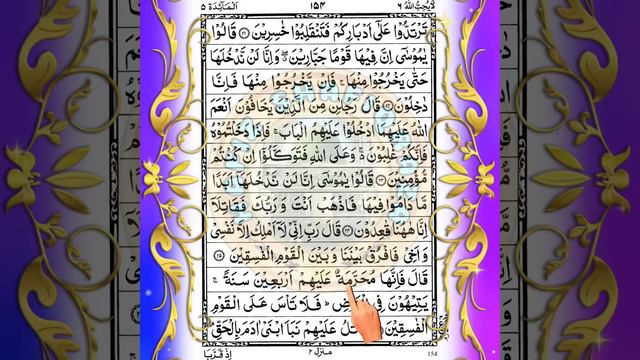 لَا يُحِبُّ اللهُ ٦ ١٥٤ اَلْمَآئِدَة ٥
تَرْتَدُّوْا عَلٰٓى اَدْبَارِكُمْ فَتَنْقَلِبُوْا خٰسِرِيْنَ ﴿٢١﴾ قَالُوْا
يٰمُوْسٰٓى اِنَّ فِيْهَا قَوْمًا جَبَّارِيْنَ ۖ وَاِنَّا لَنْ نَّدْخُلَهَا
حَتّٰى يَخْرُجُوْا مِنْهَا ۚ فَاِنْ يَّخْرُجُوْا مِنْهَا فَاِنَّا
دٰخِلُوْنَ ﴿٢٢﴾ قَالَ رَجُلٰنِ مِنَ الَّذِيْنَ يَخَافُوْنَ اَنْعَمَ
اللّٰهُ عَلَيْهِمَا ادْخُلُوْا عَلَيْهِمُ الْبَابَ ۚ فَاِذَا دَخَلْتُمُوْهُ
فَاِنَّكُمْ غٰلِبُوْنَ ۚ وَعَلَى اللّٰهِ فَتَوَكَّلُوْٓا اِنْ كُنْتُمْ
مُّؤْمِنِيْنَ ﴿٢٣﴾ قَالُوْا يٰمُوْسٰٓى اِنَّا لَنْ نَّدْخُلَهَآ اَبَدًا
مَّا دَامُوْا فِيْهَا فَاذْهَبْ اَنْتَ وَرَبُّكَ فَقَاتِلَآ
اِنَّا هٰهُنَا قٰعِدُوْنَ ﴿٢٤﴾ قَالَ رَبِّ اِنِّيْ لَآ اَمْلِكُ اِلَّا نَفْسِيْ
وَاَخِيْ فَافْرُقْ بَيْنَنَا وَبَيْنَ الْقَوْمِ الْفٰسِقِيْنَ ﴿٢٥﴾
قَالَ فَاِنَّهَا مُحَرَّمَةٌ عَلَيْهِمْ اَرْبَعِيْنَ سَنَةً ۚ
يَتِيْهُوْنَ فِى ؕ فَلَا تَاْسَ عَلَى الْقَوْمِ
الْفٰسِقِيْنَ عَلَيْهِمْ نَبَاَ ابْنَيْ اٰدَمَ بِالْحَقِّ
اِذْ قَرَّبَا منزل ٢ 154